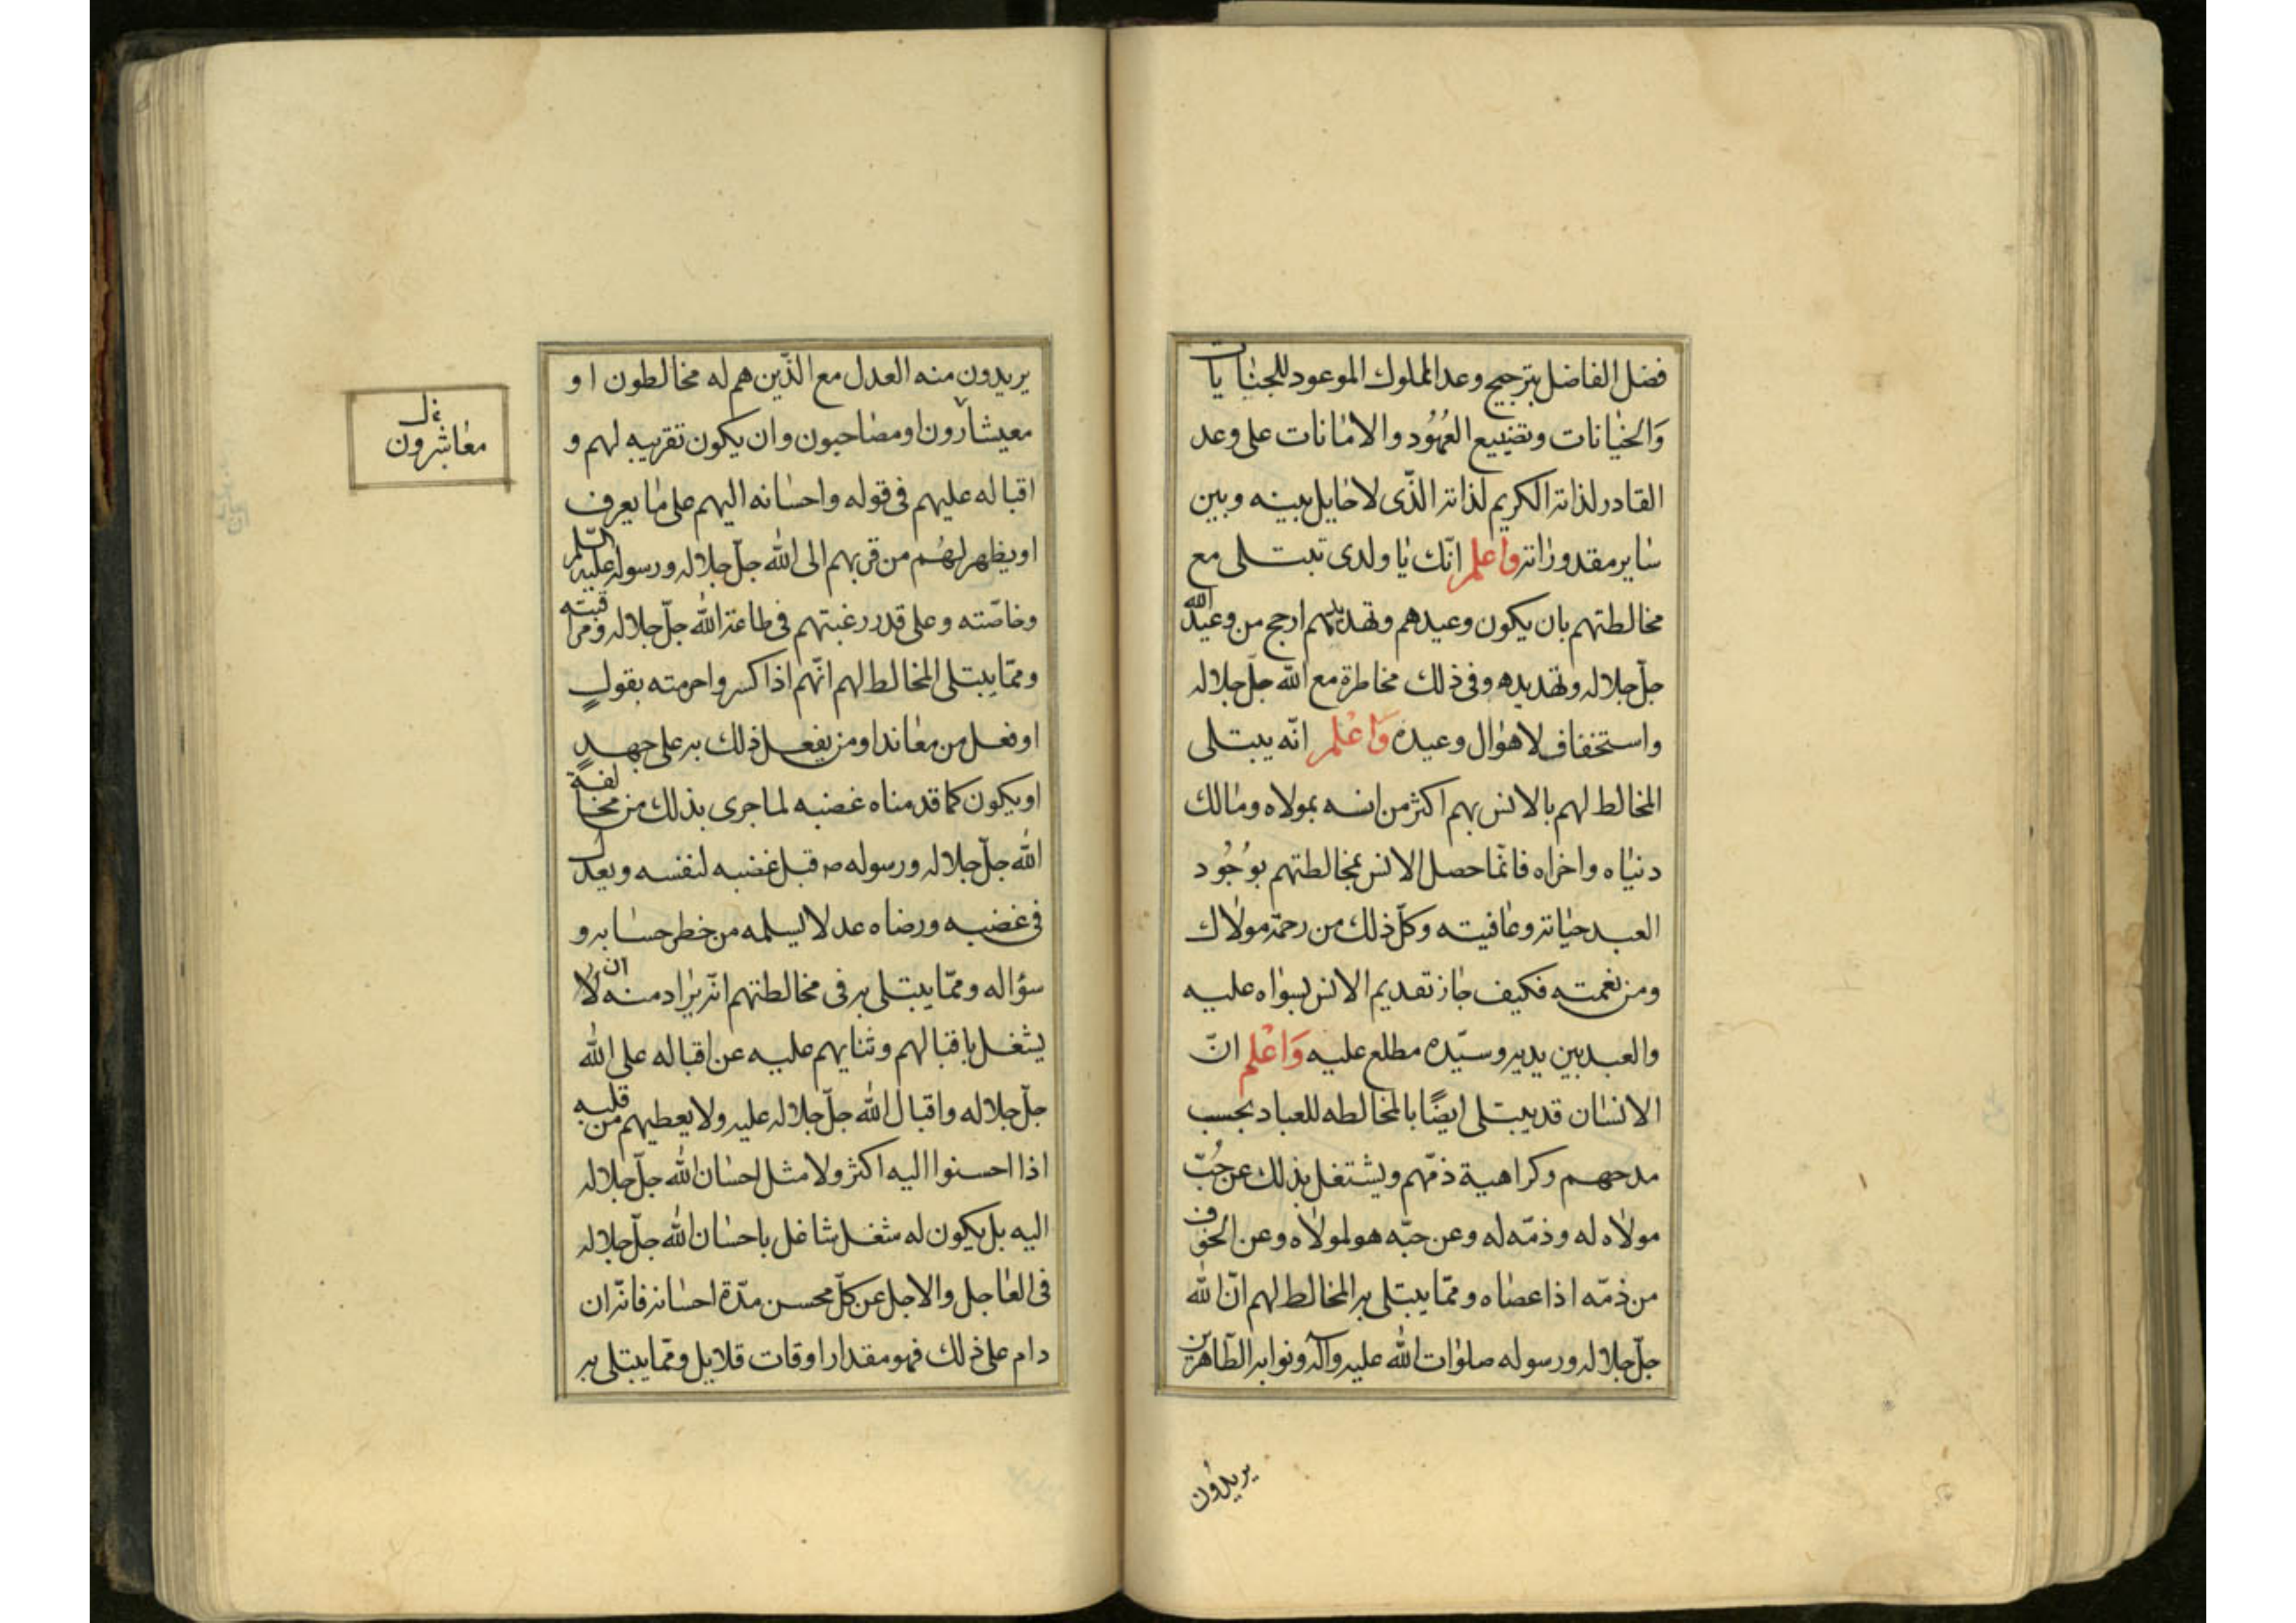 فضل الفاضل بترجيح وعد المملوك الموعود للجنايات
وَالخيانات وتضييع العُهُود والامانات على وعد
القادر لذاته الكريم لذاته الذّى لا حايل بينه وبين
ساير مقدوراته واعلم انّك يا ولدى تبتلى مع
مخالطتهم بان يكون وعيدهم وتهديدهم ارجح من وعيد الله
جلّ جلاله وتهديده وفى ذلك مخاطرة مع الله جلّ جلاله
واستخفاف لاهوال وعيده وَاعْلم انّه يبتلى
المخالط لهم بالانس بهم اكثر من انسه بمولاه ومالك
دنياه واخراه فانّما حصل الانس بمخالطتهم بوُجُود
العبد حياته وعافيته وكلّ ذلك من رحمة مولاك
ومن نعمته فكيف جاز تقديم الانس بسواه عليه
والعبد بين يديه وسيّده مطلع عليه وَاعْلم انّ
الانسان قد يبتلى ايضًا بالمخالطه للعباد بحسب
مدحهم وكراهية ذمّهم ويشتغل بذلك عن حُبّ
مولاه له وذمّه له وعن حبّه هو لمولاه وعن الخوف
من ذمّه اذا عصاه وممّا يبتلى به المخالط لهم انّ الله
جلّ جلاله ورسوله صلوات الله عليه وآله ونوابه الطّاهرين
يريدون
يريدون منه العدل مع الذّين هم له مخالطون او
معيشارون او مصاحبون وان يكون تقريبه لهم و
اقباله عليهم فى قوله واحسانه اليهم على ما يعرف
او يظهر لهُم من قربهم الى الله جلّ جلاله ورسوله عليه السّلم
وخاصّته وعلى قدر رغبتهم فى طاعة الله جلّ جلاله ومراقبته
وممّا يبتلى المخالط لهم انّهم اذا كسروا حرمته بقولٍ
او فعل من معاند او من يفعل ذلك به على جهدٍ
او يكون كما قدمناه غضبه لما جرى بذلك من مخالفة
الله جلّ جلاله ورسوله ص قبل غضبه لنفسه ويعدل
فى غضبه ورضاه عدلا يسلمه من خطر حسابه و
سؤاله وممّا يبتلى به فى مخالطتهم انّه يراد منه ان لا
يشغل باقبالهم وثنايهم عليه عن اقباله على الله
جلّ جلاله واقبال الله جلّ جلاله عليه ولا يعطيهم من قلبه
اذا احسنوا اليه اكثر ولا مثل احسان الله جلّ جلاله
اليه بل يكون له شغل شاغل باحسان الله جلّ جلاله
فى العاجل والاجل عن كلّ محسن مدّة احسانه فانّه ان
دام على ذلك فهو مقدار اوقات قلايل وممّا يبتلى به
معاشرون